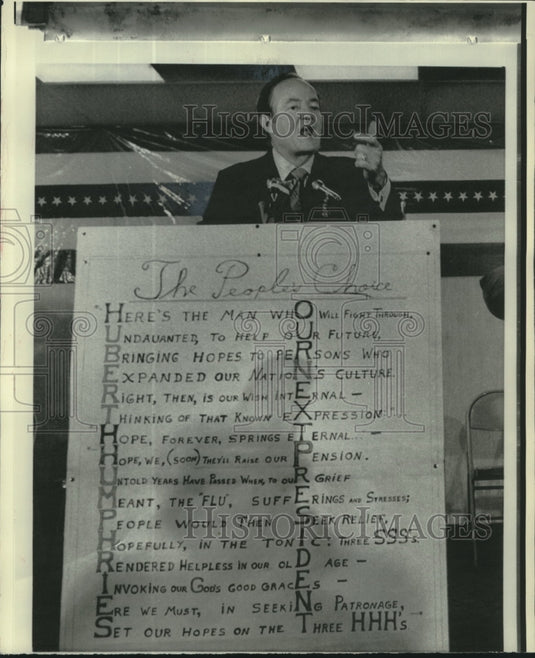 HISTORIC IMAGES
The People's Choice
HERE'S THE MAN WHO WILL FIGHT THROUGH,
UNDAUANTED, TO HELP OUR FUTURE,
BRINGING HOPES TO PERSONS WHO
EXPANDED OUR NATIONS CULTURE.
RIGHT, THEN, IS OUR WISH INTERNAL —
THINKING OF THAT KNOWN EXPRESSION:
HOPE, FOREVER, SPRINGS ETERNAL... —
HOPE, WE, (SOON) THEY'LL RAISE OUR PENSION.
UNTOLD YEARS HAVE PASSED WHEN, TO OUR GRIEF
MEANT, THE "FLU", SUFFERINGS AND STRESSES;
PEOPLE WOULD THEN SEEK RELIEF,
HOPEFULLY, IN THE TONIC: THREE SSS's.
RENDERED HELPLESS IN OUR OLD AGE —
INVOKING OUR GOD'S GOOD GRACES —
ERE WE MUST, IN SEEKING PATRONAGE,
SET OUR HOPES ON THE THREE HHH's
HISTORIC IMAGES